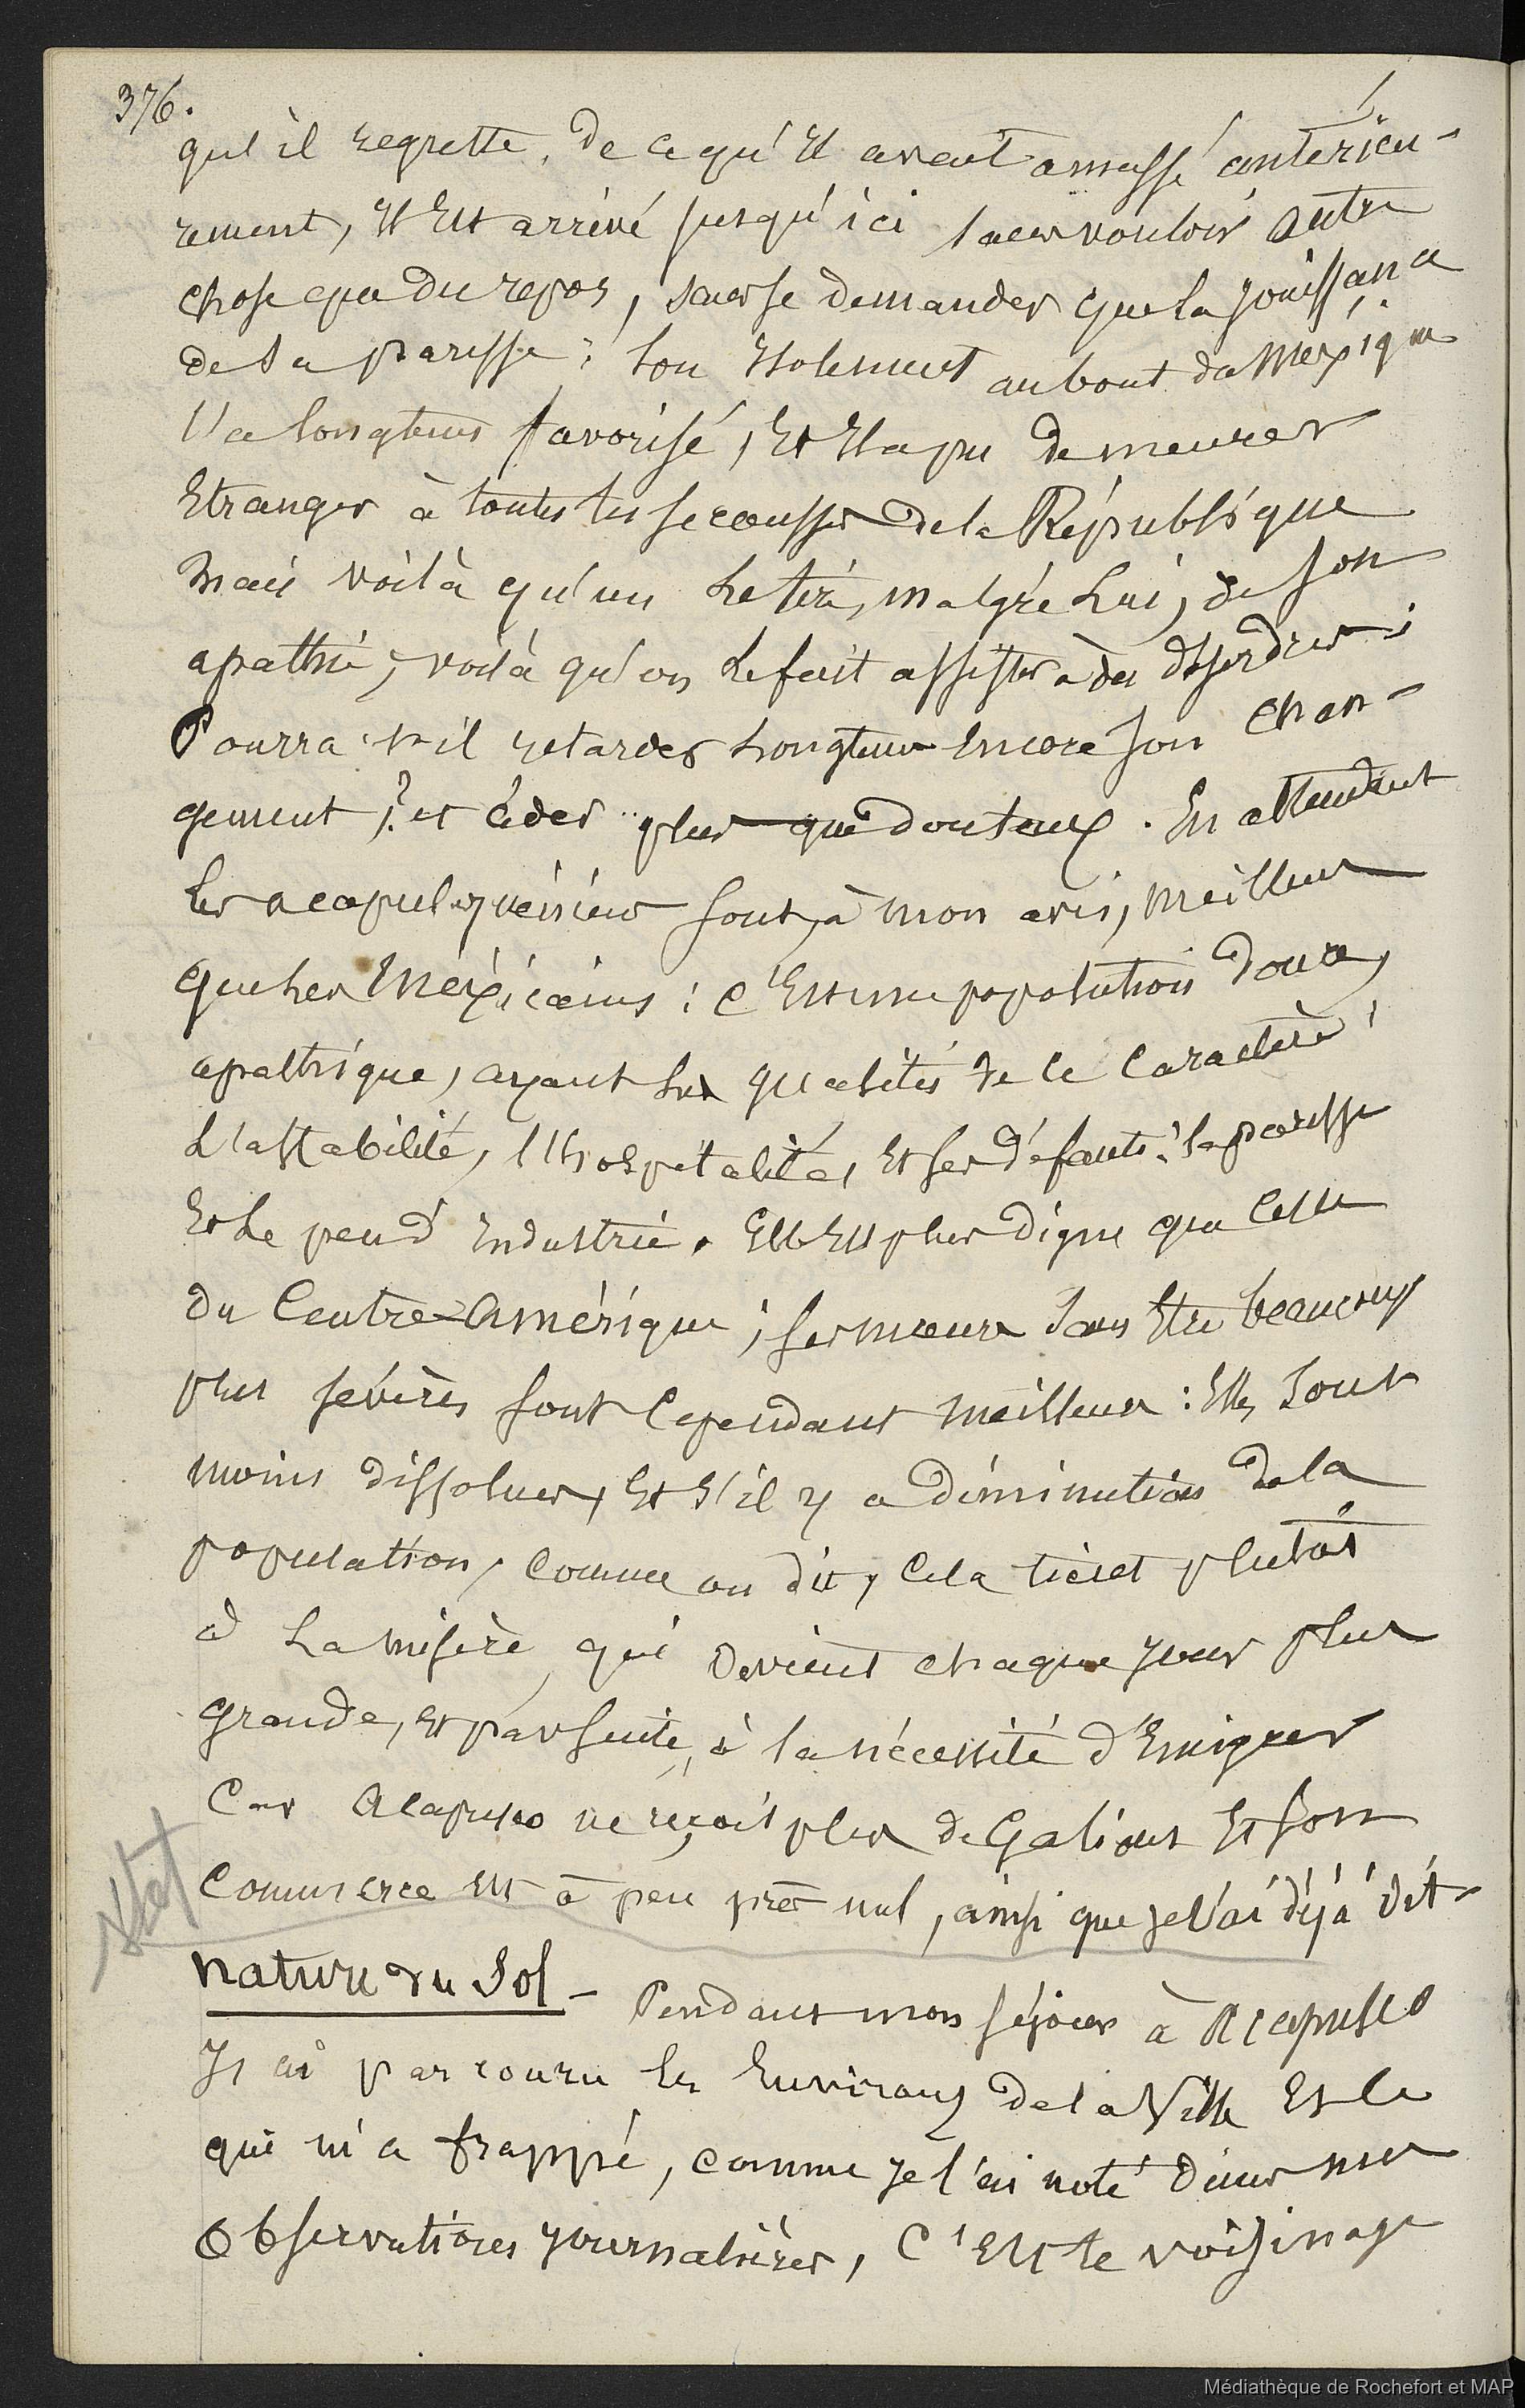 376.
qu'il regrette, de ce qu'il avait amassé antérieu-
rement, il est arrivé jusqu'ici sans vouloir autre
chose que du repos, sans se demander que la jouissance
de sa paresse ; son isolement au bout du Mexique
l'a longtems favorisé, et il a pu demeurer
étranger à toutes les secousses de la République
mais voilà qu'on le tire, malgré lui, de son
apathie, voilà qu'on le fait assister à des désordres ;
Pourra-t-il retarder longtems encore son chan-
gement ? plus que douteux. En attendant
les acapulquéniens sont, à mon avis, meilleurs
que les Méxicains : c'est une population douce,
apathique, ayant les qualités de ce caractère :
L'affabilité, l'hospitalité, et ses défauts : la paresse
et le peu d'industrie. Elle est plus digne que celle
du Centre-Amérique ; ses mœurs sans être beaucoup
plus sévères sont cependant meilleures : Elles sont
moins dissolues, et s'il y a diminution de la
population, comme on dit, cela tient plutôt
à la misère qui devient chaque jour plus
grande, et par suite, à la nécessité d'émigrer
Car Acapulco ne reçoit plus de Galions et son
commerce est à peu près nul, ainsi que je l'ai déjà dit-
nature du Sol - Pendant mon séjour à Acapulco
J'ai parcouru les environs de la Ville et ce
qui m'a frappé, comme je l'ai noté dans mes
Observations journalières, C'est le voisinage
Médiathèque de Rochefort et MAP